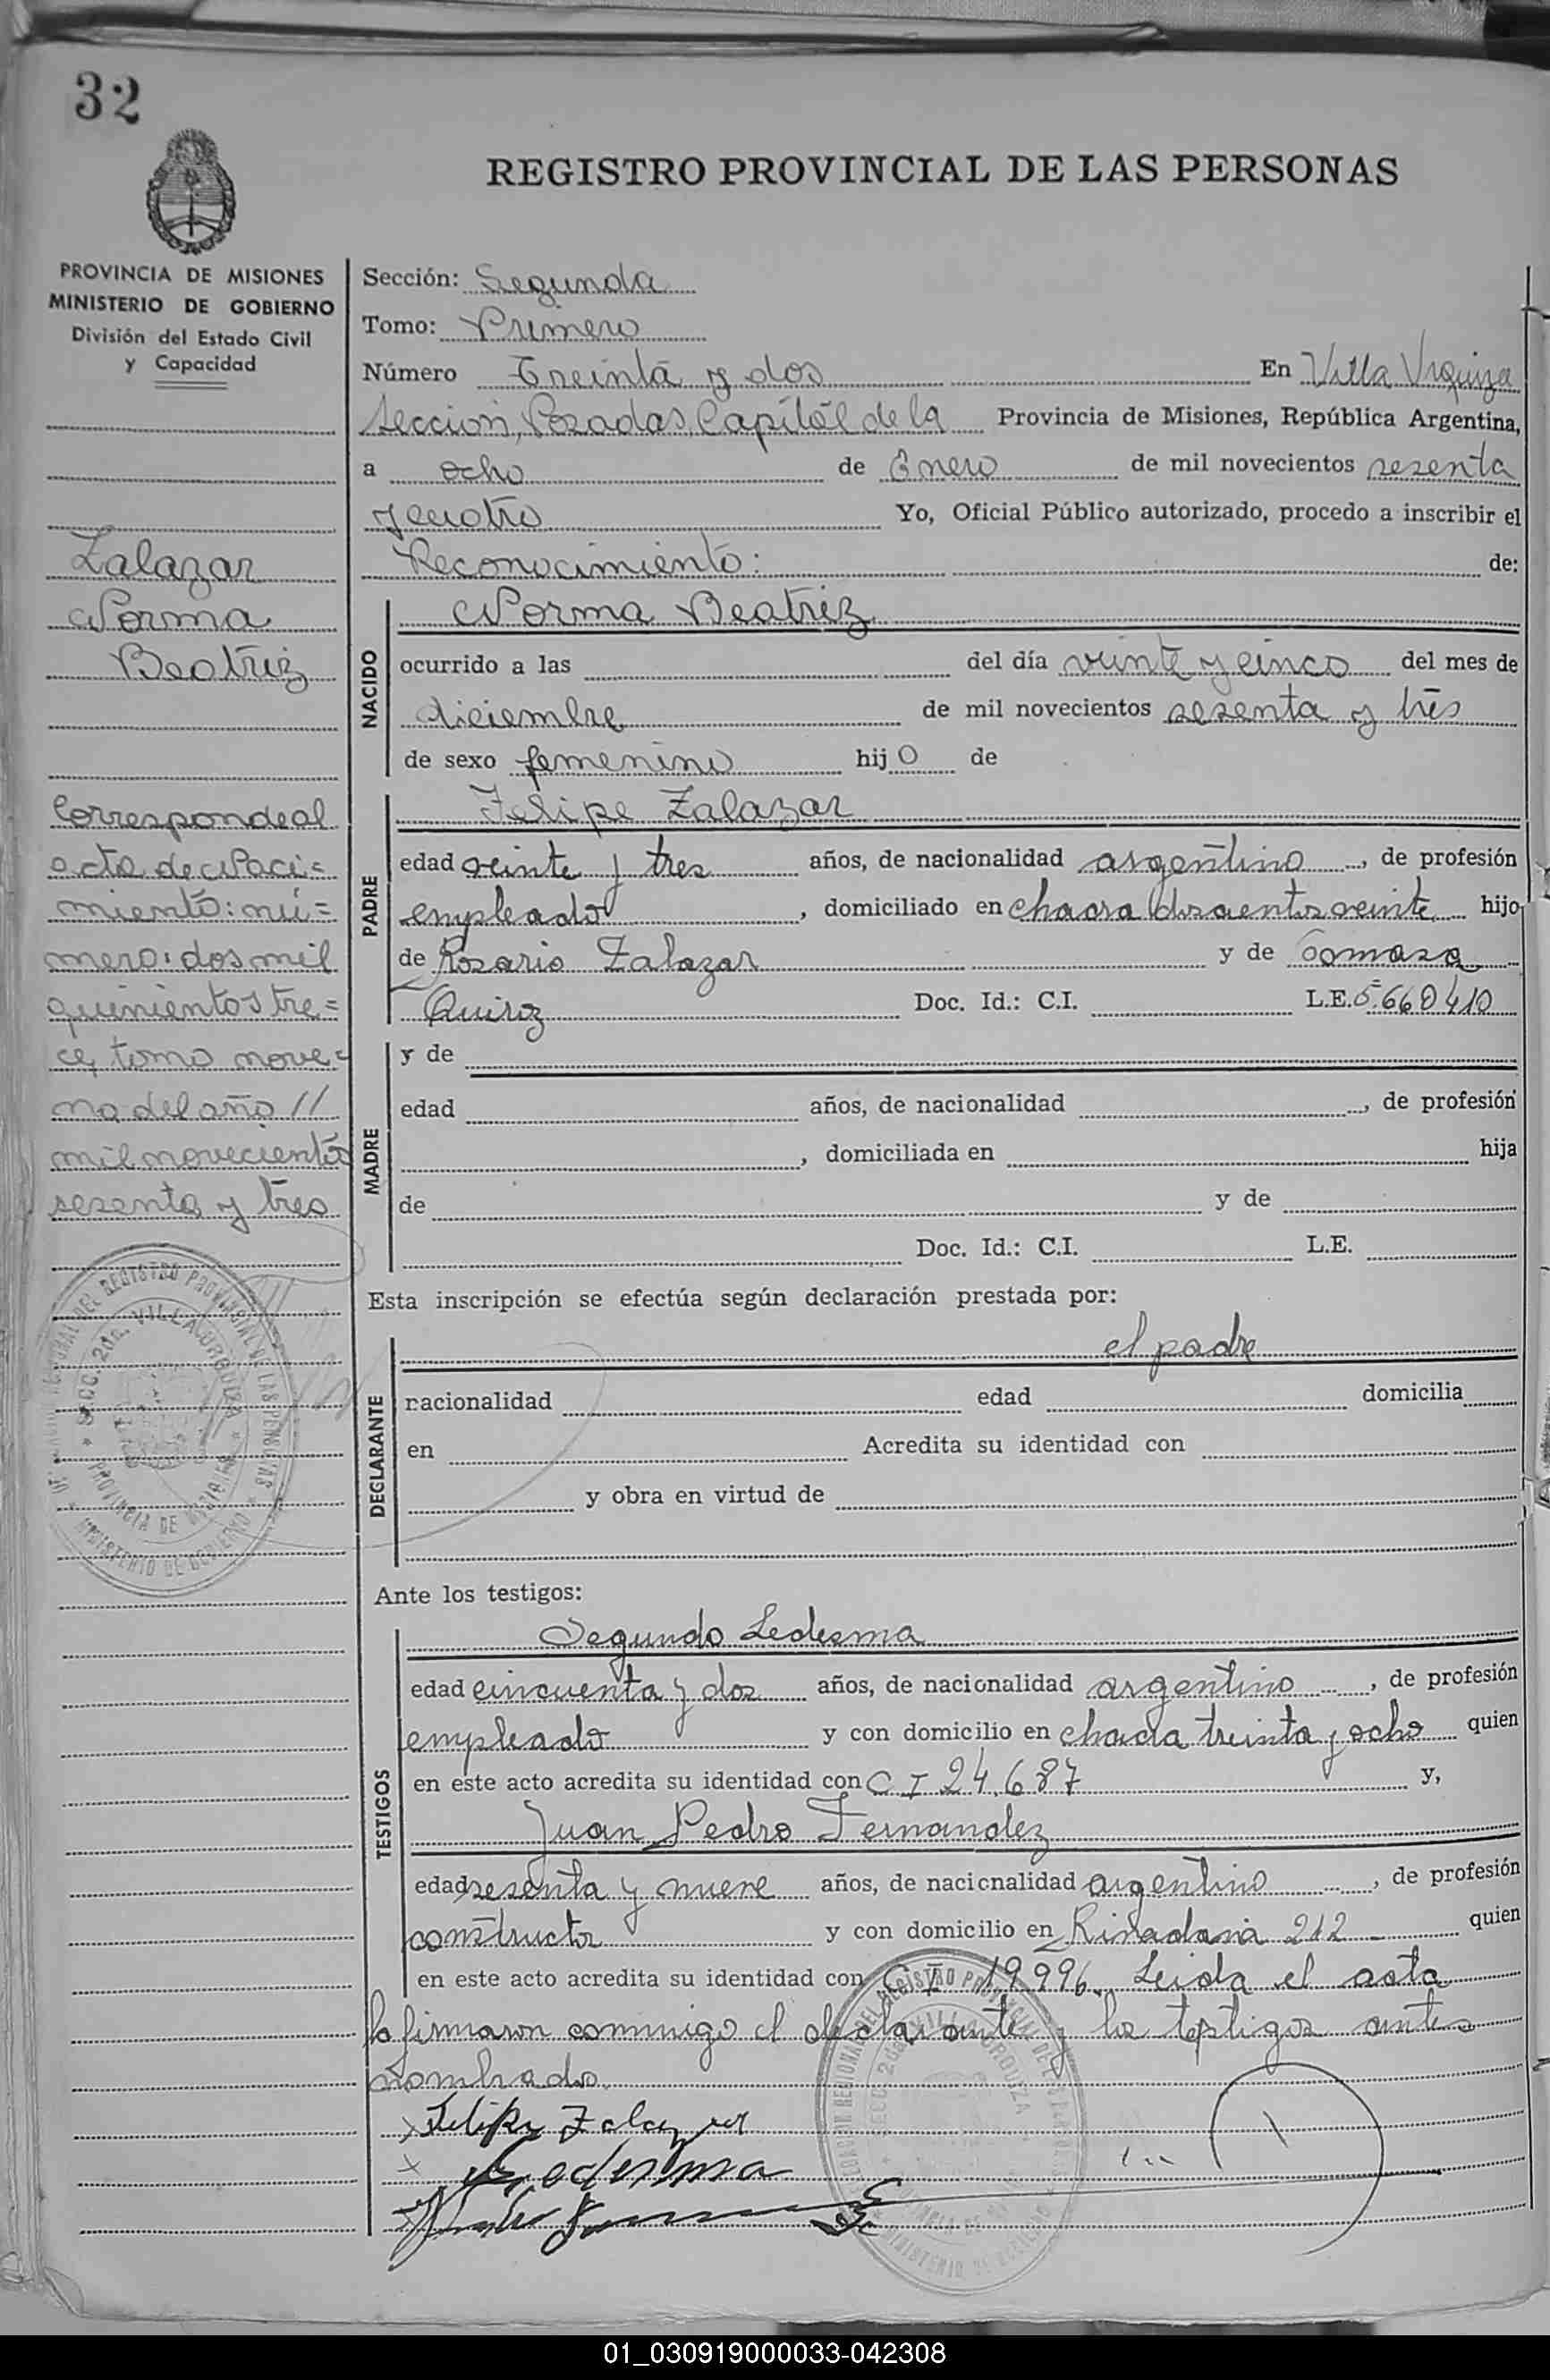 32
REGISTRO PROVINCIAL DE LAS PERSONAS
PROVINCIA DE MISIONES
MINISTERIO DE GOBIERNO
División del Estado Civil
y Capacidad
Zalazar
Norma
Beatriz
Corresponde al
acta de Naci=
miento: nú=
mero: dos mil
quinientos tre=
ce, tomo nove=
no del año //
mil novecientos
sesenta y tres
Sección: Segunda
Tomo: Primero
Número Treinta y dos En Villa Urquiza
Sección, Posadas, Capitál de la Provincia de Misiones, República Argentina,
a ocho de Enero de mil novecientos sesenta
y cuatro Yo, Oficial Público autorizado, procedo a inscribir el
Reconocimiento: de:
NACIDO
Norma Beatriz
ocurrido a las del día veinte y cinco del mes de
diciembre de mil novecientos sesenta y tres
de sexo femenino hijo de
PADRE
Felipe Zalazar
edad veinte y tres años, de nacionalidad argentino, de profesión
empleado, domiciliado en chacra doscientos veinte hijo
de Rosario Zalazar y de Tomasa
Quiroz Doc. Id.: C.I. L.E. 5.660410
MADRE
y de
edad años, de nacionalidad , de profesión
, domiciliada en hija
de y de
Doc. Id.: C.I. L.E.
Esta inscripción se efectúa según declaración prestada por:
DECLARANTE
el padre
nacionalidad edad domicilia
en Acredita su identidad con
y obra en virtud de
Ante los testigos:
TESTIGOS
Segundo Ledesma
edad cincuenta y dos años, de nacionalidad argentino, de profesión
empleado y con domicilio en chacra treinta y ocho quien
en este acto acredita su identidad con C I 24.687 y,
Juan Pedro Fernandez
edad sesenta y nueve años, de nacionalidad argentino, de profesión
constructor y con domicilio en Rivadavia 212 quien
en este acto acredita su identidad con C I 19.996. Leida el acta
la firmaron conmigo el declarante y los testigos antes
nombrados.
x Felipe Zalazar
x Ledesma
SECC. 2da. VILLA URQUIZA
PROVINCIA DE MISIONES
MINISTERIO DE GOBIERNO
01_030919000033-042308